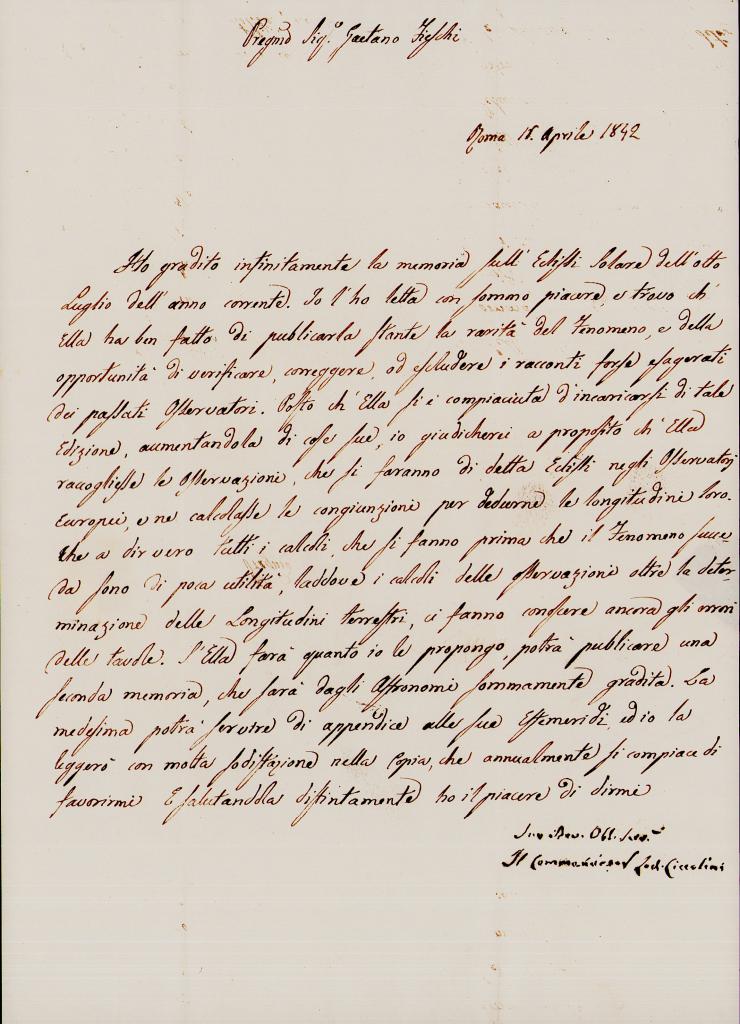 Pregmo Sig.º Gaetano Fieschi
Roma 18. Aprile 1842
Ho gradito infinitamente la memoria sull' Eclissi Solare dell'otto
Luglio dell'anno corrente. Io l'ho letta con sommo piacere, e trovo ch'
Ella ha ben fatto di publicarla stante la rarità del Fenomeno, e della
opportunità di verificare, correggere, od escludere i racconti forse esagerati
dei passati Osservatori. Posto ch' Ella si è compiaciuta d'incaricarsi di tale
Edizione, aumentandola di cose sue, io giudicherei a proposito ch' Ella
raccogliesse le Osservazioni, che si faranno di detta Eclissi negli Osservatorj
Europei, e ne calcolasse le congiunzioni per dedurne le longitudini loro.
Che a dir vero tutti i calcoli, che si fanno prima che il Fenomeno succe-
da sono di poca utilità, laddove i calcoli delle osservazioni oltre la deter-
minazione delle Longitudini terrestri, ci fanno conoscere ancora gli errori
delle tavole. S'Ella farà quanto io le propongo, potrà publicare una
seconda memoria, che sarà dagli Astronomi sommamente gradita. La
medesima potrà servire di appendice alle sue Effemeridi, ed io la
leggerò con molta sodisfazione nella Copia, che annualmente si compiace di
favorirmi E salutandola distintamente ho il piacere di dirmi
Suo Dev. Obl. Ser.e
Il Commendator Lod. Ciccolini